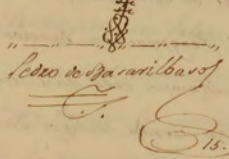 Pedro de Basavilbaso
15.